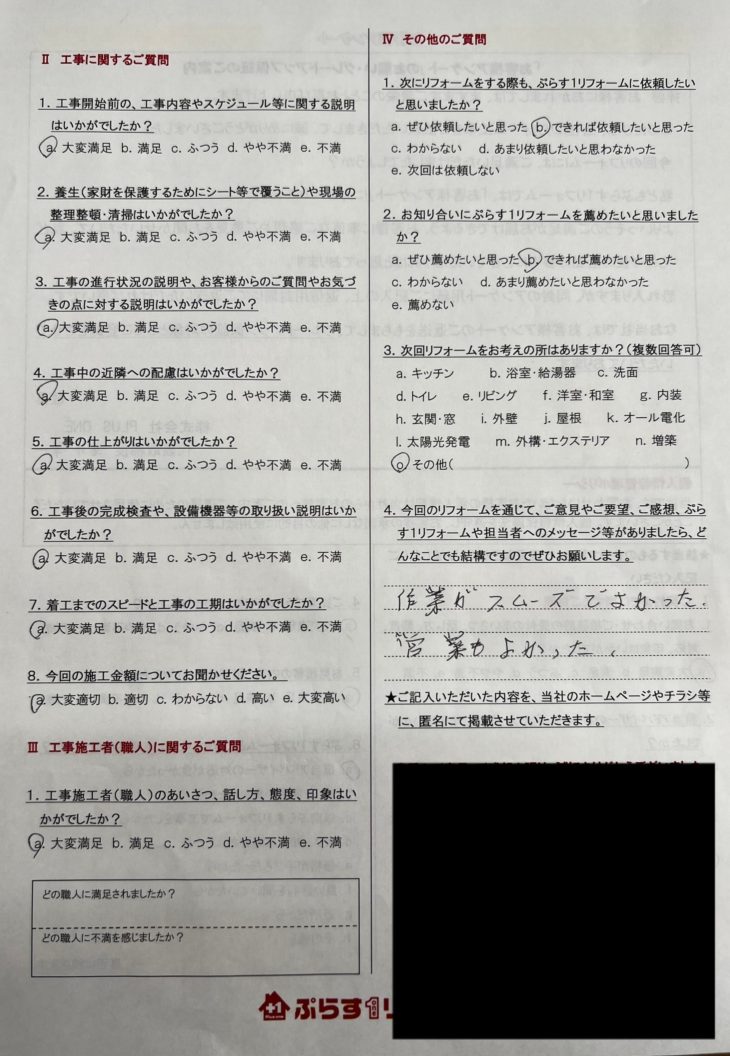 Ⅱ 工事に関するご質問
1. 工事開始前の、工事内容やスケジュール等に関する説明
はいかがでしたか?
a. 大変満足 b. 満足 c. ふつう d. やや不満 e. 不満
2. 養生(家財を保護するためにシート等で覆うこと)や現場の
整理整頓・清掃はいかがでしたか?
a. 大変満足 b. 満足 c. ふつう d. やや不満 e. 不満
3. 工事の進行状況の説明や、お客様からのご質問やお気づ
きの点に対する説明はいかがでしたか?
a. 大変満足 b. 満足 c. ふつう d. やや不満 e. 不満
4. 工事中の近隣への配慮はいかがでしたか?
a. 大変満足 b. 満足 c. ふつう d. やや不満 e. 不満
5. 工事の仕上がりはいかがでしたか?
a. 大変満足 b. 満足 c. ふつう d. やや不満 e. 不満
6. 工事後の完成検査や、設備機器等の取り扱い説明はいか
がでしたか?
a. 大変満足 b. 満足 c. ふつう d. やや不満 e. 不満
7. 着工までのスピードと工事の工期はいかがでしたか?
a. 大変満足 b. 満足 c. ふつう d. やや不満 e. 不満
8. 今回の施工金額についてお聞かせください。
a. 大変適切 b. 適切 c. わからない d. 高い e. 大変高い
Ⅲ 工事施工者(職人)に関するご質問
1. 工事施工者(職人)のあいさつ、話し方、態度、印象はい
かがでしたか?
a. 大変満足 b. 満足 c. ふつう d. やや不満 e. 不満
どの職人に満足されましたか?
どの職人に不満を感じましたか?
Ⅳ その他のご質問
1. 次にリフォームをする際も、ぷらす1リフォームに依頼したい
と思いましたか?
a. ぜひ依頼したいと思った b. できれば依頼したいと思った
c. わからない d. あまり依頼したいと思わなかった
e. 次回は依頼しない
2. お知り合いにぷらす1リフォームを薦めたいと思いました
か?
a. ぜひ薦めたいと思った b. できれば薦めたいと思った
c. わからない d. あまり薦めたいと思わなかった
e. 薦めない
3. 次回リフォームをお考えの所はありますか?(複数回答可)
a. キッチン b. 浴室・給湯器 c. 洗面
d. トイレ e. リビング f. 洋室・和室 g. 内装
h. 玄関・窓 i. 外壁 j. 屋根 k. オール電化
l. 太陽光発電 m. 外構・エクステリア n. 増築
o. その他( )
4. 今回のリフォームを通じて、ご意見やご要望、ご感想、ぷら
す1リフォームや担当者へのメッセージ等がありましたら、ど
んなことでも結構ですのでぜひお願いします。
作業がスムーズでよかった.
営業もよかった.
★ご記入いただいた内容を、当社のホームページやチラシ等
に、匿名にて掲載させていただきます。
+1 ぷらす1リ